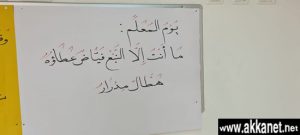 يَوْمُ المُعَلِّمِ :
مَا أَنْتَ إِلَّا النَّبْعُ فَيَّاضٌ عَطَاؤُهُ
هَطَّالٌ مِدْرَارٌ
www.akkanet.net